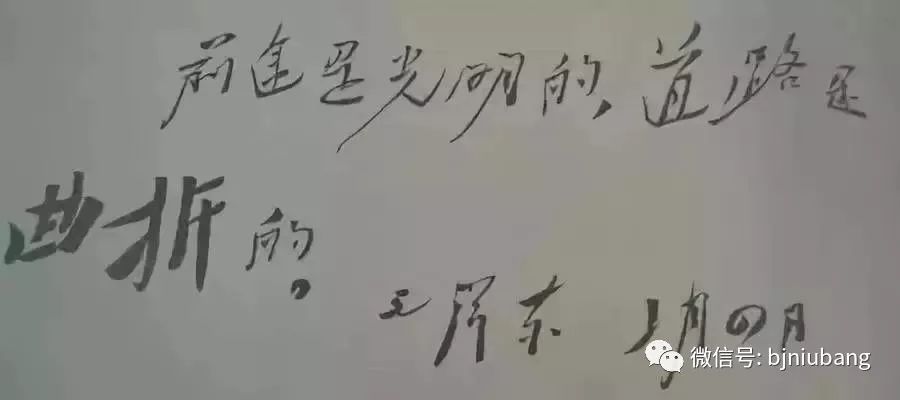 前途是光明的,道路是
曲折的。
毛泽东 月四日
微信号: bjniubang